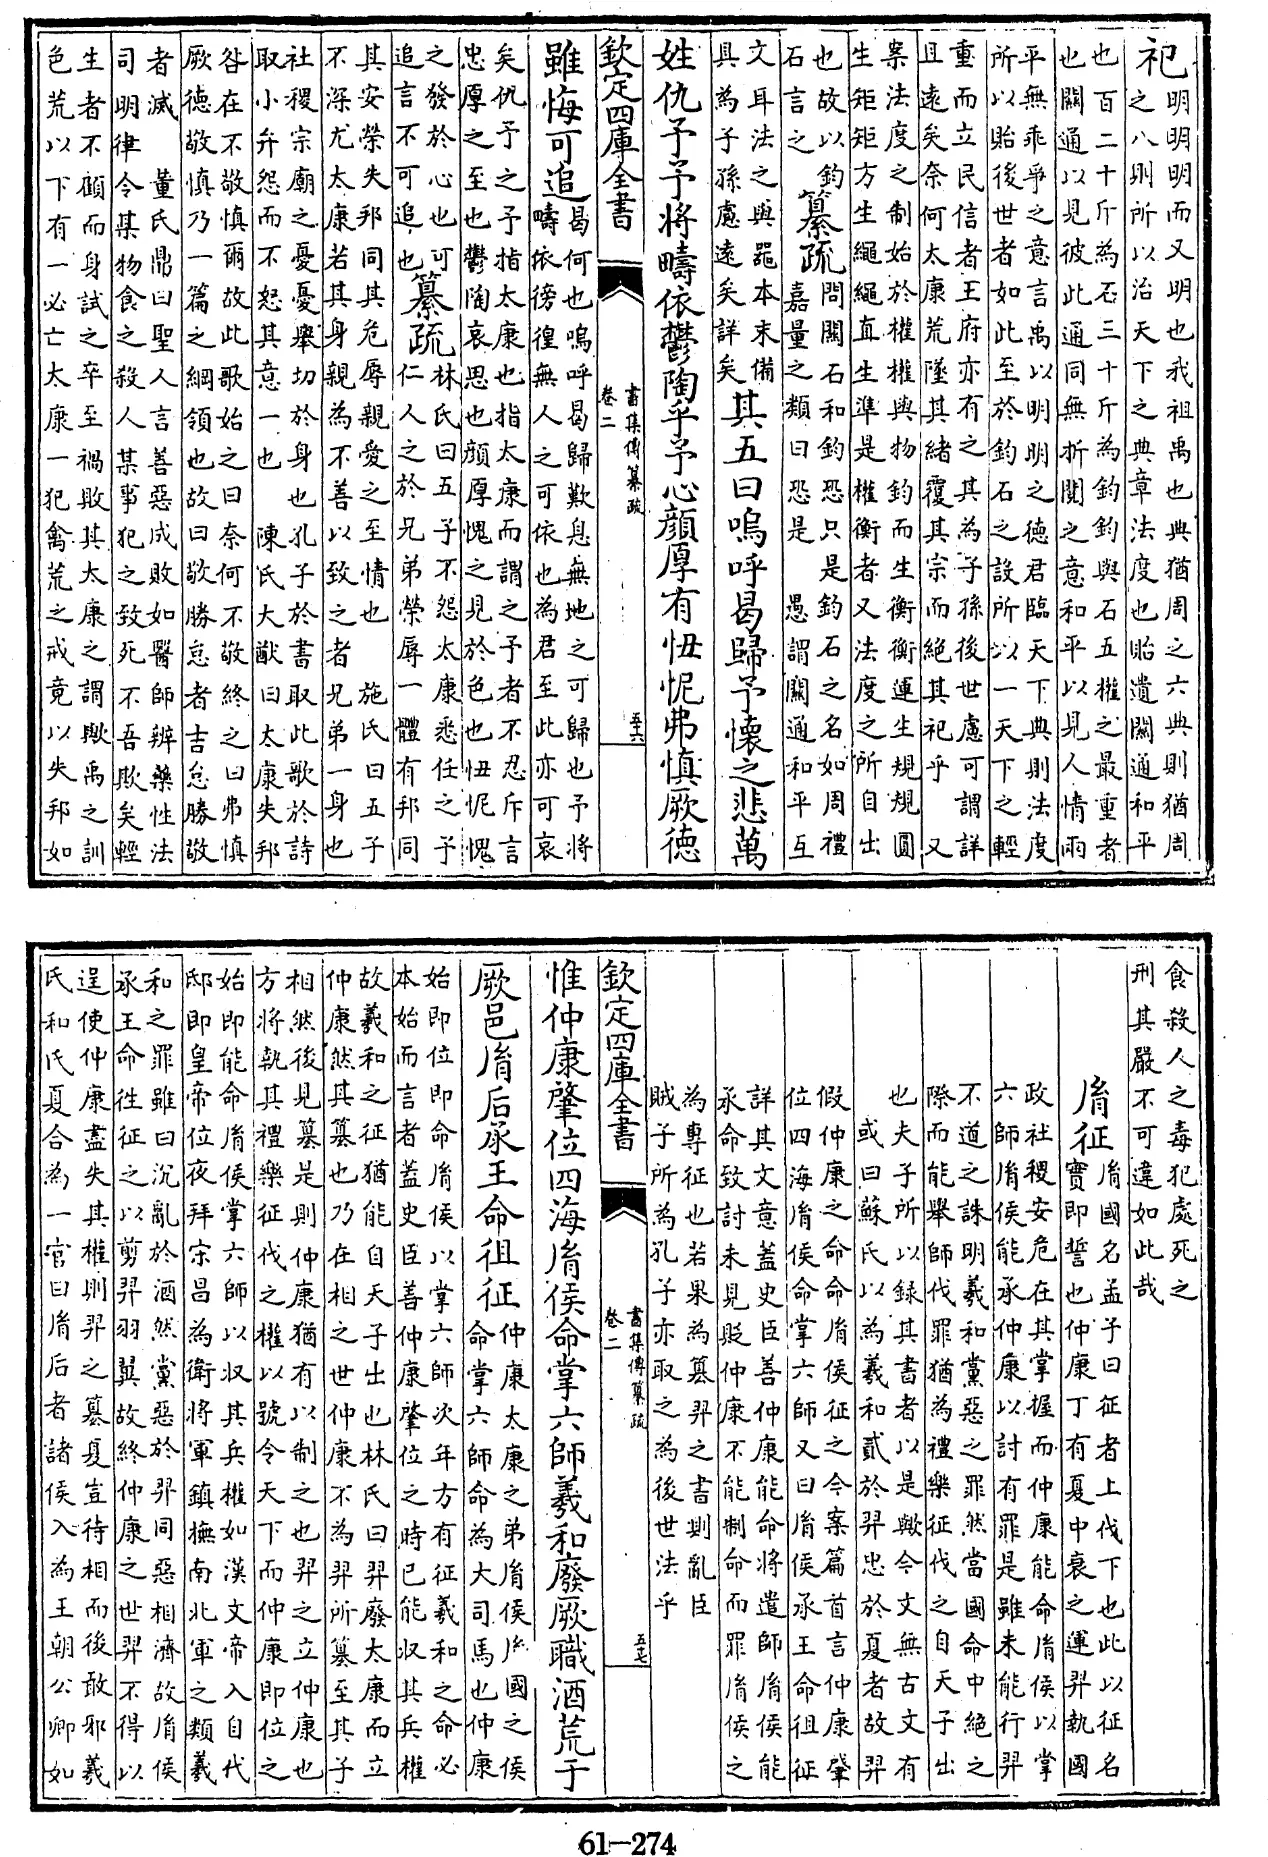 祀
明明明而又明也我祖禹也典猶周之六典則猶周
之八則所以治天下之典章法度也貽遺關通和平
也百二十斤為石三十斤為鈞鈞與石五權之最重者
也關通以見彼此通同無折閱之意和平以見人情兩
平無乖爭之意言禹以明明之德君臨天下典則法度
所以貽後世者如此至於鈞石之設所以一天下之輕
重而立民信者王府亦有之其為子孫後世慮可謂詳
且遠矣奈何太康荒墜其緒覆其宗而絕其祀乎 又
案法度之制始於權權與物鈞而生衡衡運生規規圓
生矩矩方生繩繩直生準是權衡者又法度之所自出
也故以鈞
石言之
纂疏
問關石和鈞恐只是鈞石之名如周禮
嘉量之類曰恐是 愚謂關通和平互
文耳法之與器本末備
具為子孫慮遠矣詳矣
其五曰嗚呼曷歸予懷之悲萬
姓仇予予將疇依鬱陶乎予心顏厚有忸怩弗慎厥德
欽定四庫全書
書集傳纂疏
卷二
五十六
雖悔可追
曷何也嗚呼曷歸歎息無地之可歸也予將
疇依徬徨無人之可依也為君至此亦可哀
矣仇予之予指太康也指太康而謂之予者不忍斥言
忠厚之至也鬱陶哀思也顏厚愧之見於色也忸怩愧
之發於心也可
追言不可追也
纂疏
林氏曰五子不怨太康悉任之予
仁人之於兄弟榮辱一體有邦同
其安榮失邦同其危辱親愛之至情也 施氏曰五子
不深尤太康若其身親為不善以致之者兄弟一身也
社稷宗廟之憂憂舉切於身也孔子於書取此歌於詩
取小弁怨而不怒其意一也 陳氏大猷曰太康失邦
咎在不敬慎爾故此歌始之曰奈何不敬終之曰弗慎
厥德敬慎乃一篇之綱領也故曰敬勝怠者吉怠勝敬
者滅 董氏鼎曰聖人言善惡成敗如醫師辨藥性法
司明律令某物食之殺人某事犯之致死不吾欺矣輕
生者不顧而身試之卒至禍敗其太康之謂歟禹之訓
色荒以下有一必亡太康一犯禽荒之戒竟以失邦如
食殺人之毒犯處死之
刑其嚴不可違如此哉
胤征
胤國名孟子曰征者上伐下也此以征名
實即誓也仲康丁有夏中衰之運羿執國
政社稷安危在其掌握而仲康能命胤侯以掌
六師胤侯能承仲康以討有罪是雖未能行羿
不道之誅明羲和黨惡之罪然當國命中絕之
際而能舉師伐罪猶為禮樂征伐之自天子出
也夫子所以錄其書者以是歟今文無古文有
或曰蘇氏以為羲和貳於羿忠於夏者故羿
假仲康之命命胤侯征之今案篇首言仲康肇
位四海胤侯命掌六師又曰胤侯承王命徂征
詳其文意蓋史臣善仲康能命將遣師胤侯能
承命致討未見貶仲康不能制命而罪胤侯之
為專征也若果為篡羿之書則亂臣
賊子所為孔子亦取之為後世法乎
欽定四庫全書
書集傳纂疏
卷二
五十七
惟仲康肇位四海胤侯命掌六師羲和廢厥職酒荒于
厥邑胤后承王命徂征
仲康太康之弟胤侯胤國之侯
命掌六師命為大司馬也仲康
始即位即命胤侯以掌六師次年方有征羲和之命必
本始而言者蓋史臣善仲康肇位之時已能收其兵權
故羲和之征猶能自天子出也林氏曰羿廢太康而立
仲康然其篡也乃在相之世仲康不為羿所篡至其子
相然後見篡是則仲康猶有以制之也羿之立仲康也
方將執其禮樂征伐之權以號令天下而仲康即位之
始即能命胤侯掌六師以收其兵權如漢文帝入自代
邸即皇帝位夜拜宋昌為衛將軍鎮撫南北軍之類羲
和之罪雖曰沉亂於酒然黨惡於羿同惡相濟故胤侯
承王命往征之以剪羿羽翼故終仲康之世羿不得以
逞使仲康盡失其權則羿之篡夏豈待相而後敢邪羲
氏和氏夏合為一官曰胤后者諸侯入為王朝公卿如
61-274